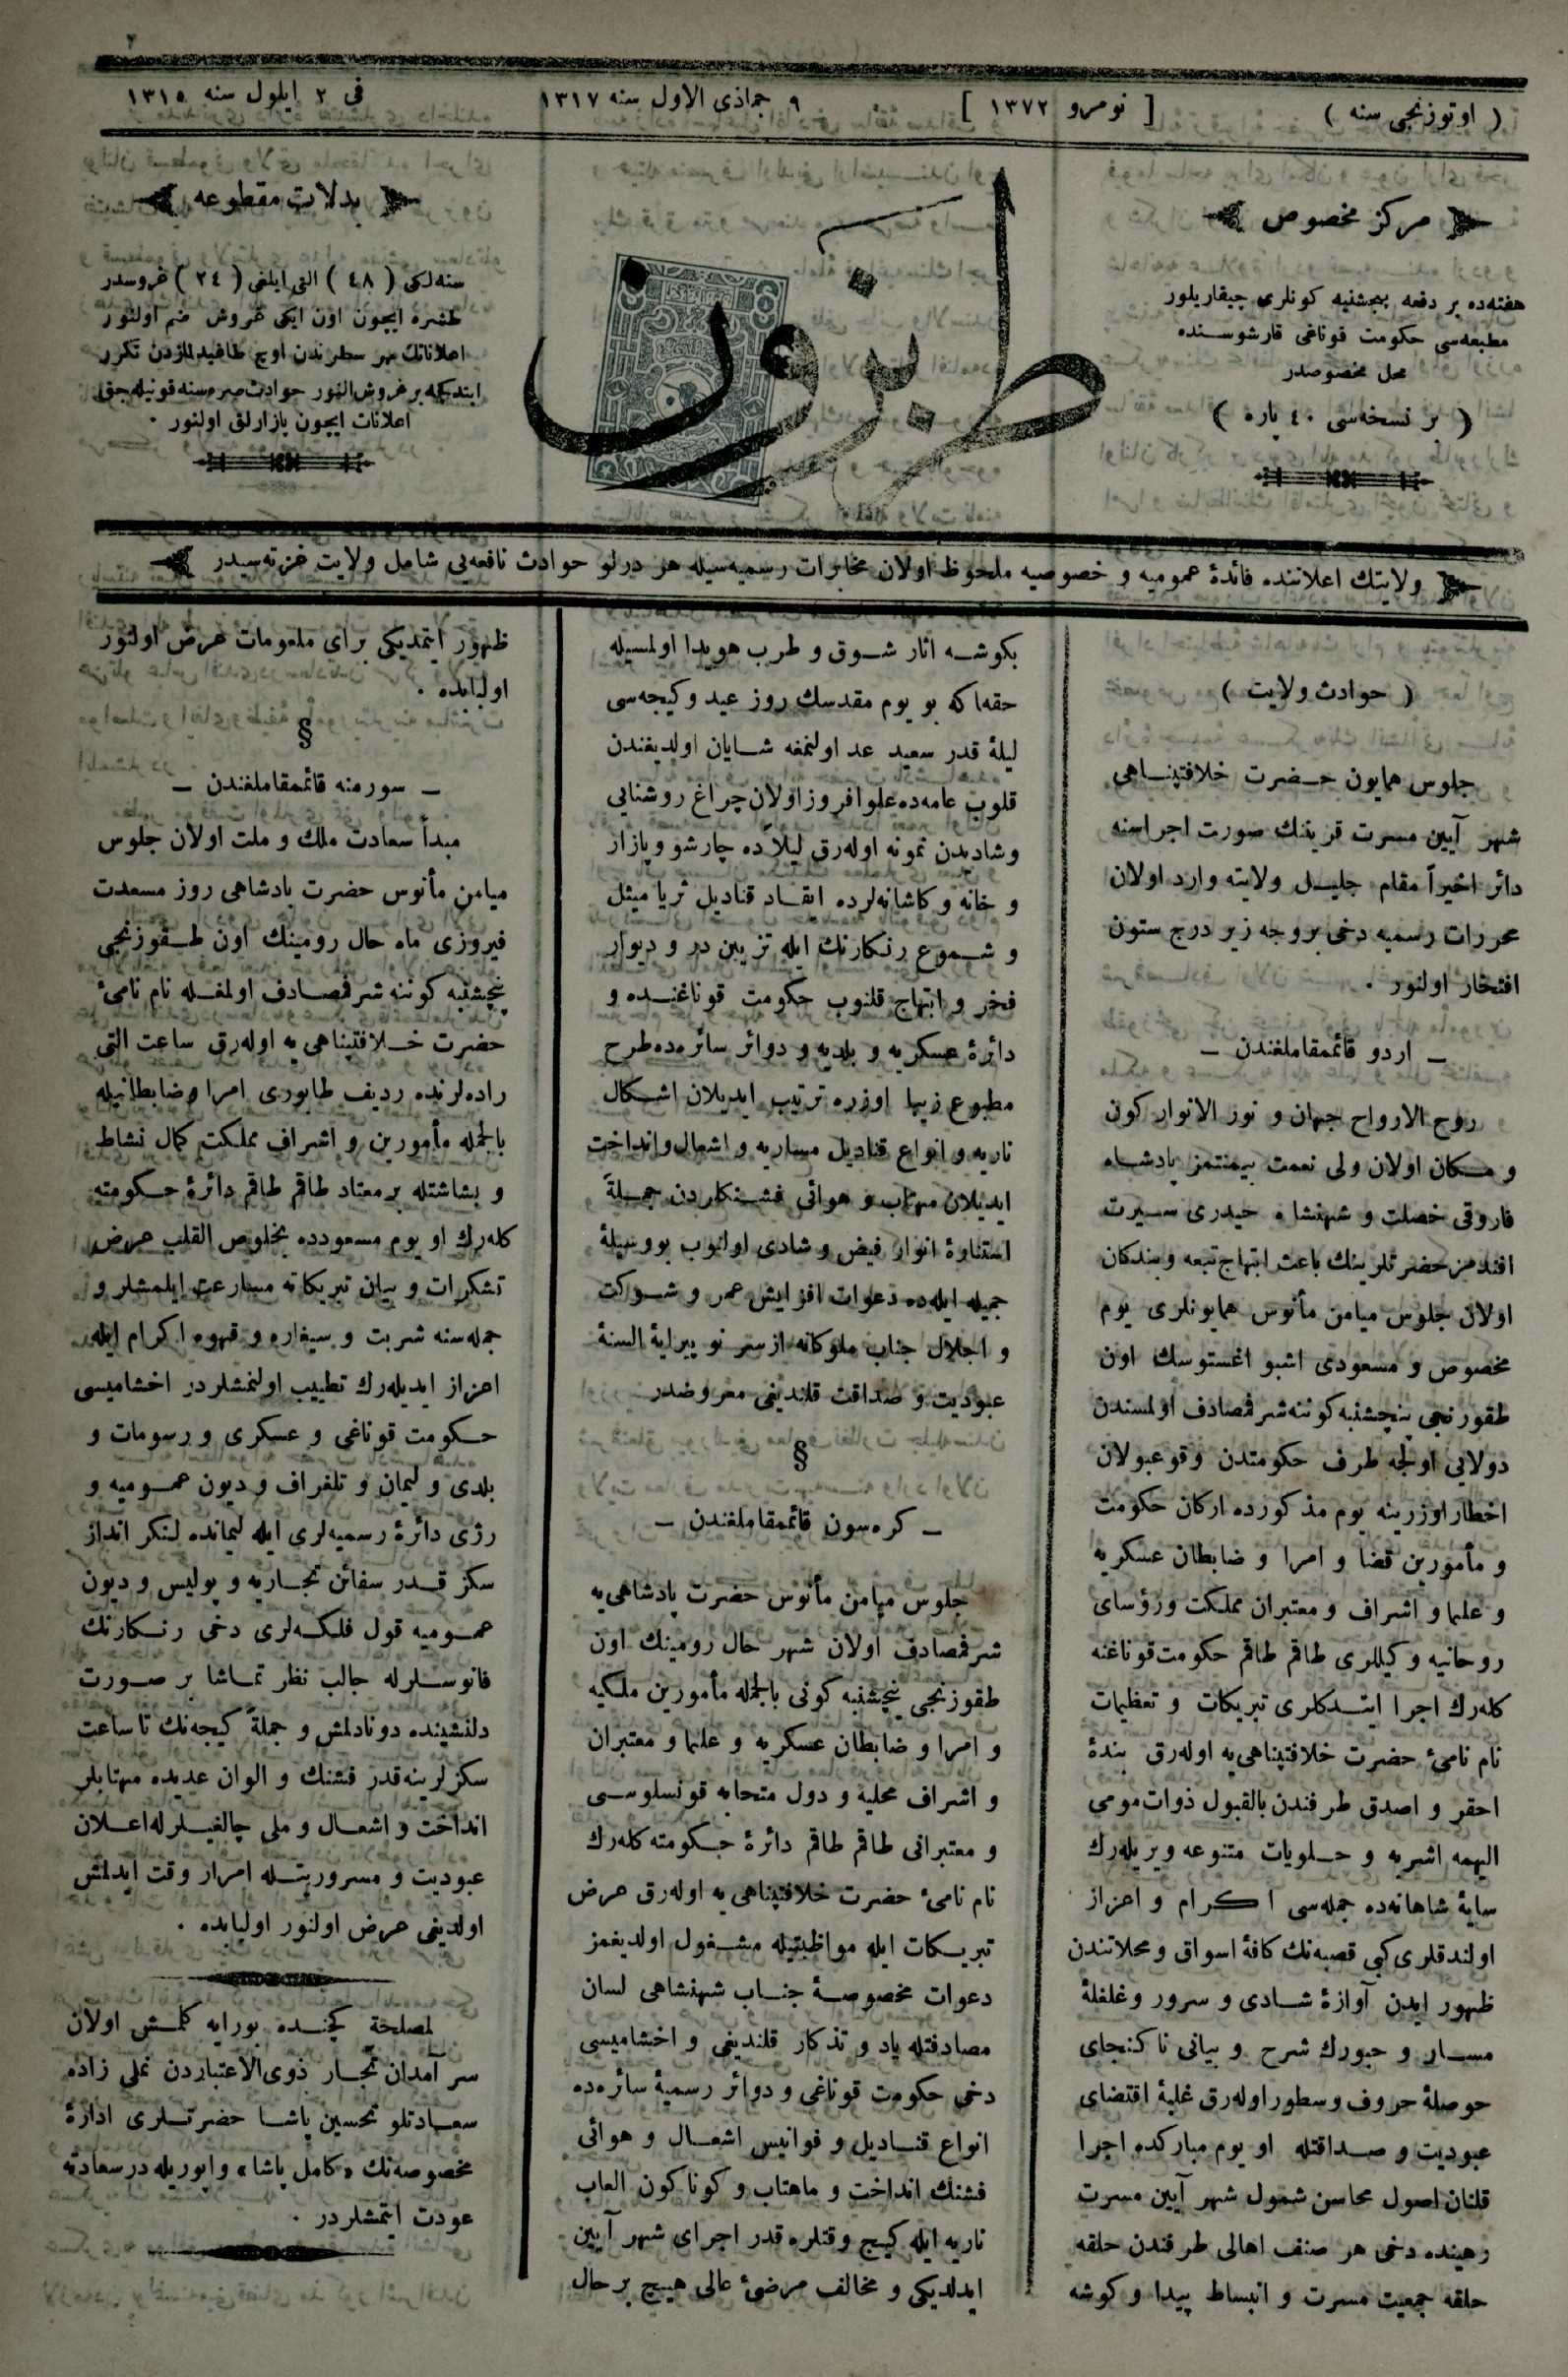 ٢
( اوتوزنجی سنه )
[ نومرو ١٣٧٢ ]
٩ جماذی الاول سنه ١٣١٧
فی ٢ ایلول سنه ١٣١٥
مركز مخصوص
هفته‌ده بر دفعه پنجشنبه كونلری چیقاریلور
مطبعه‌سی حكومت قوناغی قارشوسنده
محل مخصوصدر
( بر نسخه‌سی ٤٠ پاره )
طبزون
بدلات مقطوعه
سنه‌لكی ( ٤٨ ) التی ایلغی ( ٢٤ ) غروسدر
طشره ایچون اون ایكی غروش ضم اولنور
اعلاناتك بهر سطرندن اوچ
غروش النور حوادث صره‌سنه قونیله‌جق
اعلانات ایچون بازارلق اولنور ٠
ولایتك اعلاننده فائدهٔ عمومیه و خصوصیه ملحوظ اولان مخابرات رسمیه‌سیله هر درلو حوادث نافعه‌یی شامل ولایت غزته‌سیدر
( حوادث ولایت )
جلوس همایون حضرت خلافتپناهی
شهر آیین مسرت قریننك صورت اجراسنه
دائر اخیراً مقام جلیل ولایته وارد اولان
محررات رسمیه دخی بروجه زیر درج ستون
افتخار اولنور ٠
ـ اردو قائممقاملغندن ـ
روح الارواح جهان و نور الانوار كون
و مكان اولان ولی نعمت بیمنتمز پادشاه
فاروقی خصلت و شهنشاه حیدری سیرت
افندمز حضرتلرینك باعث ابتهاج تبعه و بندكان
اولان جلوس میامن مأنوس همایونلری یوم
مخصوص و مسعودی اشبو اغستوسك اون
طقوزنجی پنچشنبه كوننه شرفمصادف اولمسندن
دولایی اولجه طرف حكومتدن وقوعبولان
اخطار اوزرینه یوم مذكورده اركان حكومت
و مأمورین قضا و امرا و ضابطان عسكریه
و علما و اشراف و معتبران مملكت و رؤسای
روحانیه و كیللری طاقم طاقم حكومت قوناغنه
كله‌رك اجرا ایتدكلری تبریكات و تعظیمات
نام نامیٔ حضرت خلافتپناهی‌یه اوله‌رق بندهٔ
احقر و اصدق طرفندن بالقبول ذوات مومی
الیهمه اشربه و حلویات متنوعه ویریله‌رك
سایهٔ شاهانه‌ده جمله‌سی اكرام و اعزاز
اولندقلری كبی قصبه‌نك كافهٔ اسواق و محلاتندن
ظهور ایدن آوازهٔ شادی و سرور و غلغلهٔ
مسار و حبورك شرح و بیانی ناكنجای
حوصلهٔ حروف و سطور اوله‌رق غلبهٔ اقتضای
عبودیت و صداقتله او یوم مباركده اجرا
قلنان اصول محاسن شمول شهر آیین مسرت
رهینده دخی هر صنف اهالی طرفندن حلقه
حلقه جمعیت مسرت و انبساط پیدا و كوشه
بكوشه اثار شوق و طرب هویدا اولمسیله
حقه‌اكه بو یوم مقدسك روز عید و كیجه‌سی
لیلهٔ قدر سعید عد اولنمغه شایان اولدیغندن
قلوب عامه‌ده علو افروز اولان چراغ روشنایی
و شادیدن نمونه اوله‌رق لیلاًده چارشو و پازار
و خانه و كاشانه‌لرده ایقاد قنادیل ثریا میثل
و شموع رنكارنك ایله تزیین در و دیوار
فخر و ابتهاج قلنوب حكومت قوناغنده و
دائرهٔ عسكریه و بلدیه و دوائر سائره‌ده طرح
مطبوع زیبا اوزره ترتیب ایدیلان اشكال
ناریه و انواع قنادیل مساریه و اشعال و انداخت
ایدیلان مهتاب و هوائی فشنكاردن جملةً
استنارهٔ انوار فیض و شادی اولنوب بو وسیلهٔ
جمیله ایله‌ده دعوات افزایش عمر و شوكت
و اجلال جناب ملوكانه از سر نو پیرایهٔ السنهٔ
عبودیت و صداقت قلندیغی معروضدر
§
ـ كره‌سون قائممقاملغندن ـ
جلوس میامن مأنوس حضرت پادشاهی‌یه
شرفمصادف اولان شهر حال رومینك اون
طقوزنجی پنچشنبه كونی بالجمله مأمورین ملكیه
و امرا و ضابطان عسكریه و علما و معتبران
و اشراف محلیه و دول متحابه قونسلوسی
و معتبرانی طاقم طاقم دائرهٔ حكومته كله‌رك
نام نامیٔ حضرت خلافتپناهی‌یه اوله‌رق عرض
تبریكات ایله مواظبتیله مشغول اولدیغمز
دعوات مخصوصهٔ جناب شهنشاهی لسان
مصادقتله یاد و تذكار قلندیغی و اخشامیسی
دخی حكومت قوناغی و دوائر رسمیهٔ سائره‌ده
انواع قنادیل و فوانیس اشعال و هوائی
فشنك انداخت و ماهتاب و كوناكون العاب
ناریه ایله كیج وقتلره قدر اجرای شهر آیین
ایدلدیكی و مخالف مرضیٔ عالی هیچ بر حال
ظهور ایتمدیكی برای معلومات عرض اولنور
اولبابده ٠
§
ـ سورمنه قائممقاملغندن ـ
مبدأ سعادت ملك و ملت اولان جلوس
میامن مأنوس حضرت پادشاهی روز مسعدت
فیروزی ماه حال رومینك اون طقوزنجی
پنچشنبه كوننه شرفمصادف اولمغله نام نامیٔ
حضرت خلافتپناهی‌یه اوله‌رق ساعت التی
راده‌لرنده ردیف طابوری امرا و ضابطانیله
بالجمله مأمورین و اشراف مملكت كمال نشاط
و بشاشتله بر معتاد طاقم طاقم دائرهٔ حكومته
كله‌رك او یوم مسعودده بخلوص القلب عرض
تشكرات و بیان تبریكاته مسارعت ایلمشلر و
جمله‌سنه شربت و سیغاره و قهوه اكرام ایله
اعزاز ایدیله‌رك تطییب اولنمشلردر اخشامیسی
حكومت قوناغی و عسكری و رسومات و
بلدی و لیمان و تلغراف و دیون عمومیه و
رژی دائرهٔ رسمیه‌لری ایله لیمانده لنكر انداز
سكز قدر سفائن تجاریه و پولیس و دیون
عمومیه قول فلكه‌لری دخی رنكارنك
فانوسلرله جالب نظر تماشا بر صورت
دلنشینده دونادلمش و جملةً كیجه‌نك تا ساعت
سكزلرینه قدر فشنك و الوان عدیده مهتابلر
انداخت و اشعال و ملی چالغیلرله اعلان
عبودیت و مسروریتله امرار وقت ایدلمش
اولدیغی عرض اولنور اولبابده ٠
لمصلحة كچنده بورایه كلمش اولان
سر آمدان تجار ذوی الاعتباردن نملی زاده
سعادتلو تحسین پاشا حضرتلری ادارهٔ
مخصوصه‌نك «كامل پاشا» واپوریله درسعادته
عودت ایتمشلردر ٠